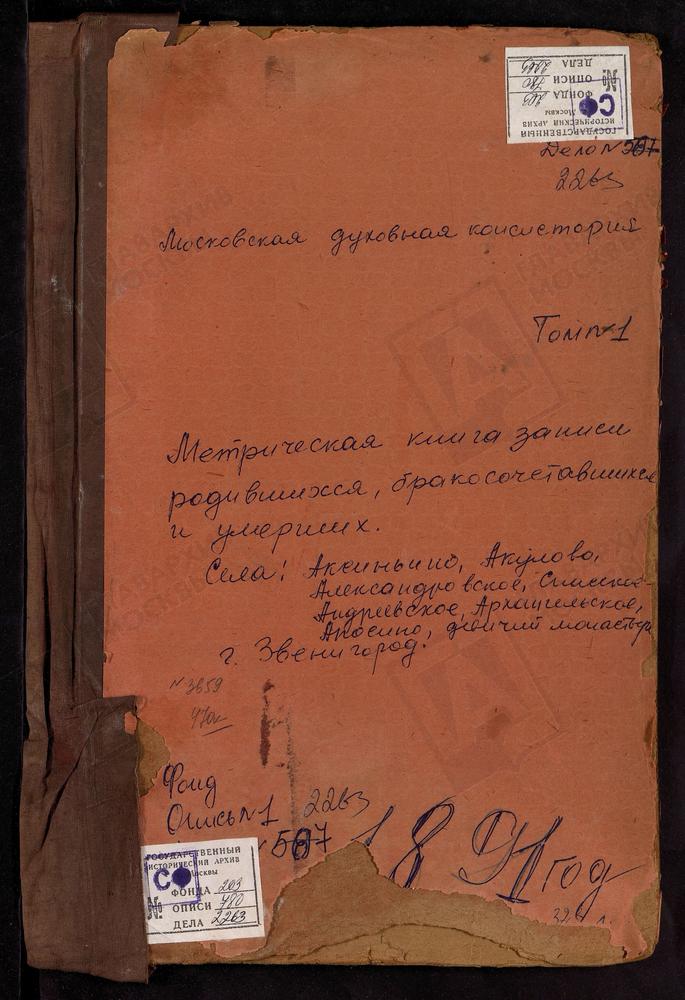 ГОСУДАРСТВЕННЫЙ
ИСТОРИЧЕСКИЙ АРХИВ
Москвы
ФОНДА 203
№ ОПИСИ 780
ДЕЛА 2263
Дело №567
2263
Московская духовная консистория
Том №1
Метрическая книга записи
родившихся, бракосочетавшихся
и умерших.
Села: Аксиньино, Акулово,
Александровское, Спасское-
Андреевское, Архангельское,
Аносино, девичий монастырь
г. Звенигород.
№3659
Фонд
Опись №1 2263
№ 567
1891 год
ГОСУДАРСТВЕННЫЙ
ИСТОРИЧЕСКИЙ АРХИВ
Москвы
ФОНДА 203
№ ОПИСИ 780
ДЕЛА 2263
ГЛАВАРХИВ
МОСКВЫ